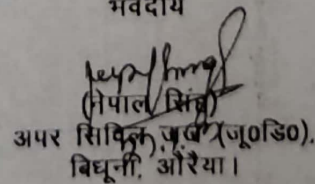 भवदीय
(नेपाल सिंह)
अपर सिविल जज (जू०डि०),
बिधूनी, औरैया।